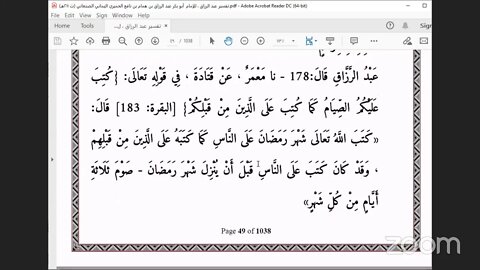 تفسير عبد الرزاق ، للإمام أبو بكر عبد الرزاق بن همام بن نافع الحميري اليماني الصنعاني (ت ٢١١هـ).pdf - Adobe Acrobat Reader DC (64-bit)
٤٩ / 1038
عَبْدُ الرَّزَّاقِ قَالَ:178 - نا مَعْمَرٌ ، عَنْ قَتَادَةَ ، فِي قَوْلِهِ تَعَالَى: {كُتِبَ
عَلَيْكُمُ الصِّيَامُ كَمَا كُتِبَ عَلَى الَّذِينَ مِنْ قَبْلِكُمْ} [البقرة: 183] قَالَ:
«كَتَبَ اللَّهُ تَعَالَى شَهْرَ رَمَضَانَ عَلَى النَّاسِ كَمَا كَتَبَهُ عَلَى الَّذِينَ مِنْ قَبْلِهِمْ
، وَقَدْ كَانَ كَتَبَ عَلَى النَّاسِ قَبْلَ أَنْ يُنْزِلَ شَهْرَ رَمَضَانَ - صَوْمَ ثَلَاثَةِ
أَيَّامٍ مِنْ كُلِّ شَهْرٍ»
Page 49 of 1038
zoom